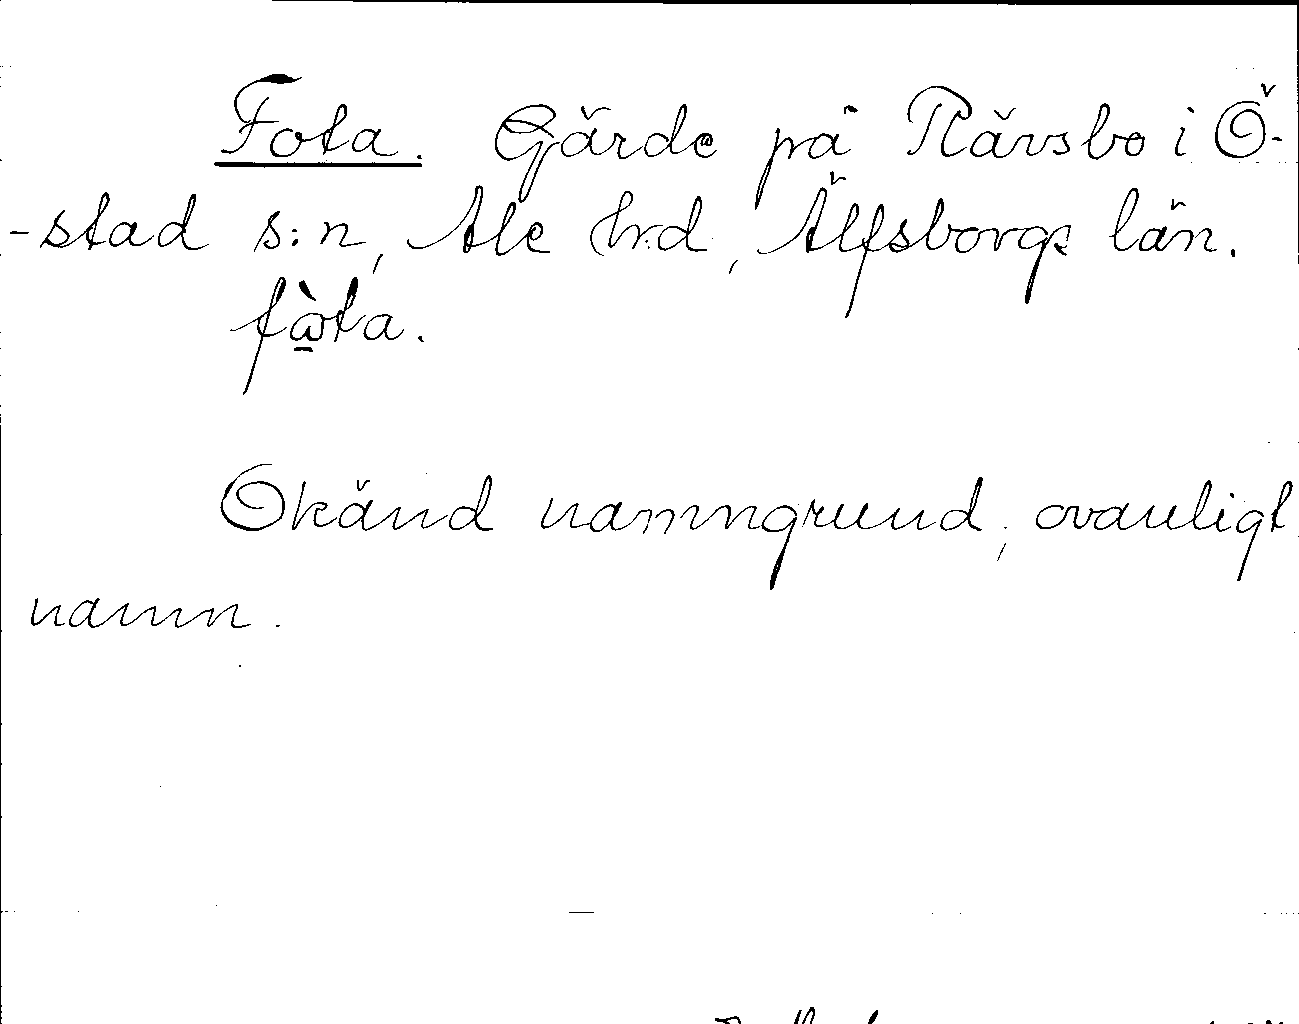 Fota. Gärde på Rävsbo i Ö-
-stad s:n, Ale hrd, Älfsborgs län.
fὼta.
Okänd namngrund, ovanligt
namn.